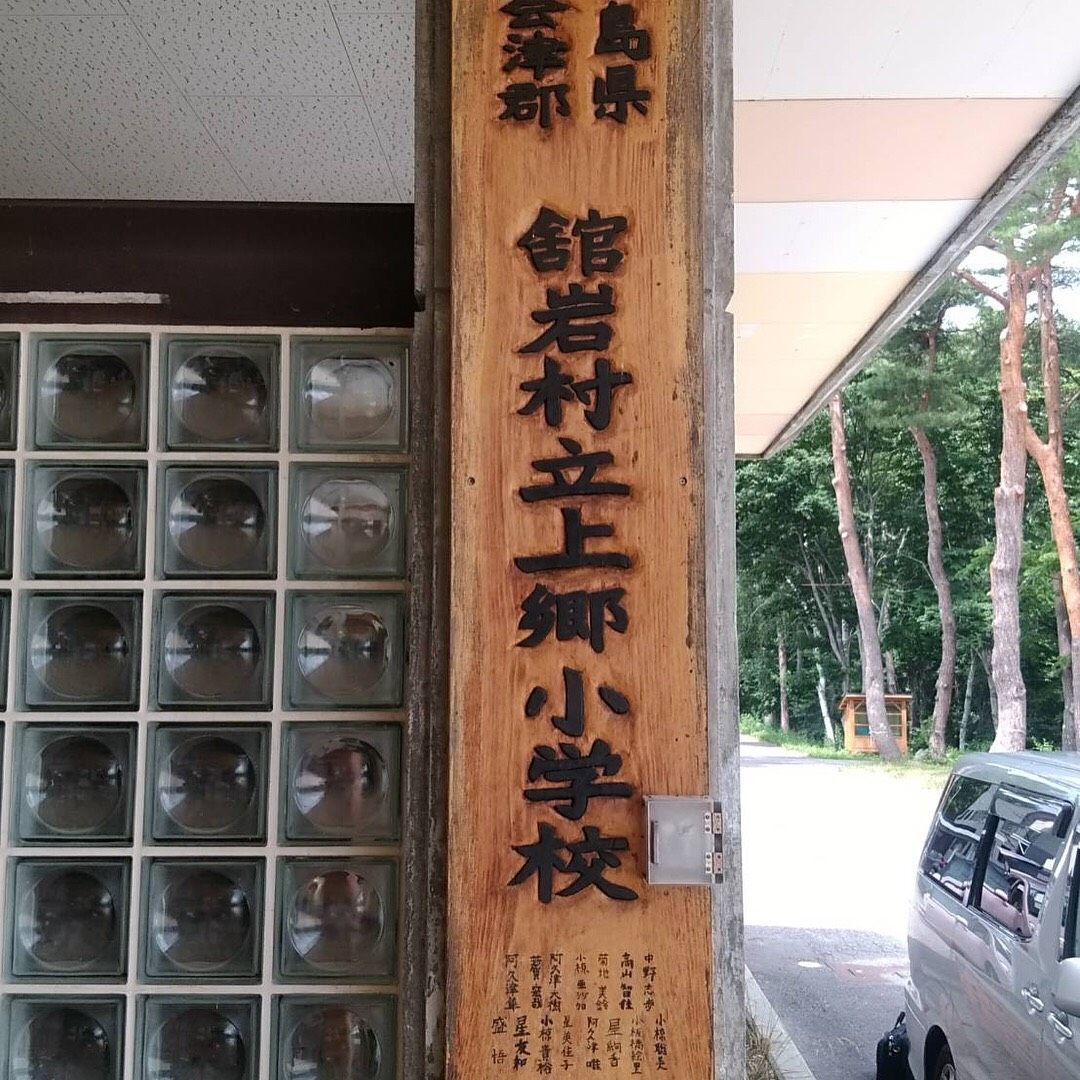 島県
会津郡
舘岩村立上郷小学校
中野志歩
高山智佳
菊地美鈴
小椋亜沙加
阿久津大樹
芳賀
阿久津隼
小椋聡美
小板橋絵里
星絢香
阿久津唯
星美佳子
小椋貴裕
星友和
盛悟